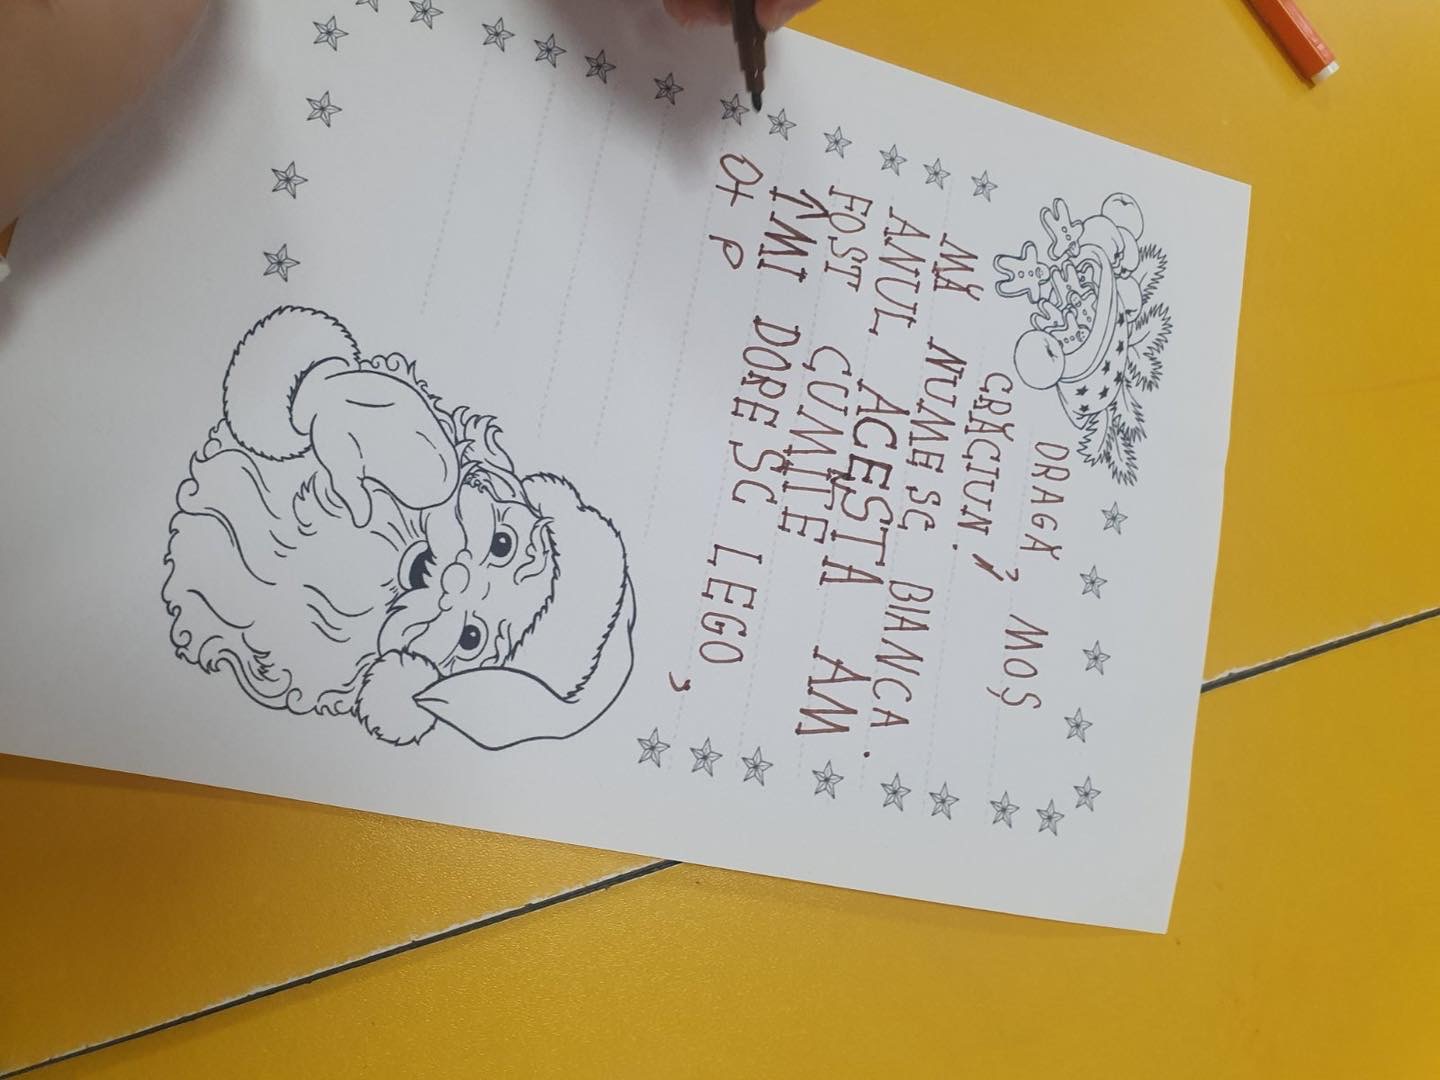 DRAGĂ, MOȘ
CRĂCIUN.
MĂ NUMESC BIANCA.
ANUL ACESTA AM
FOST CUMINTE
ÎMI DORESC LEGO,
O+ P